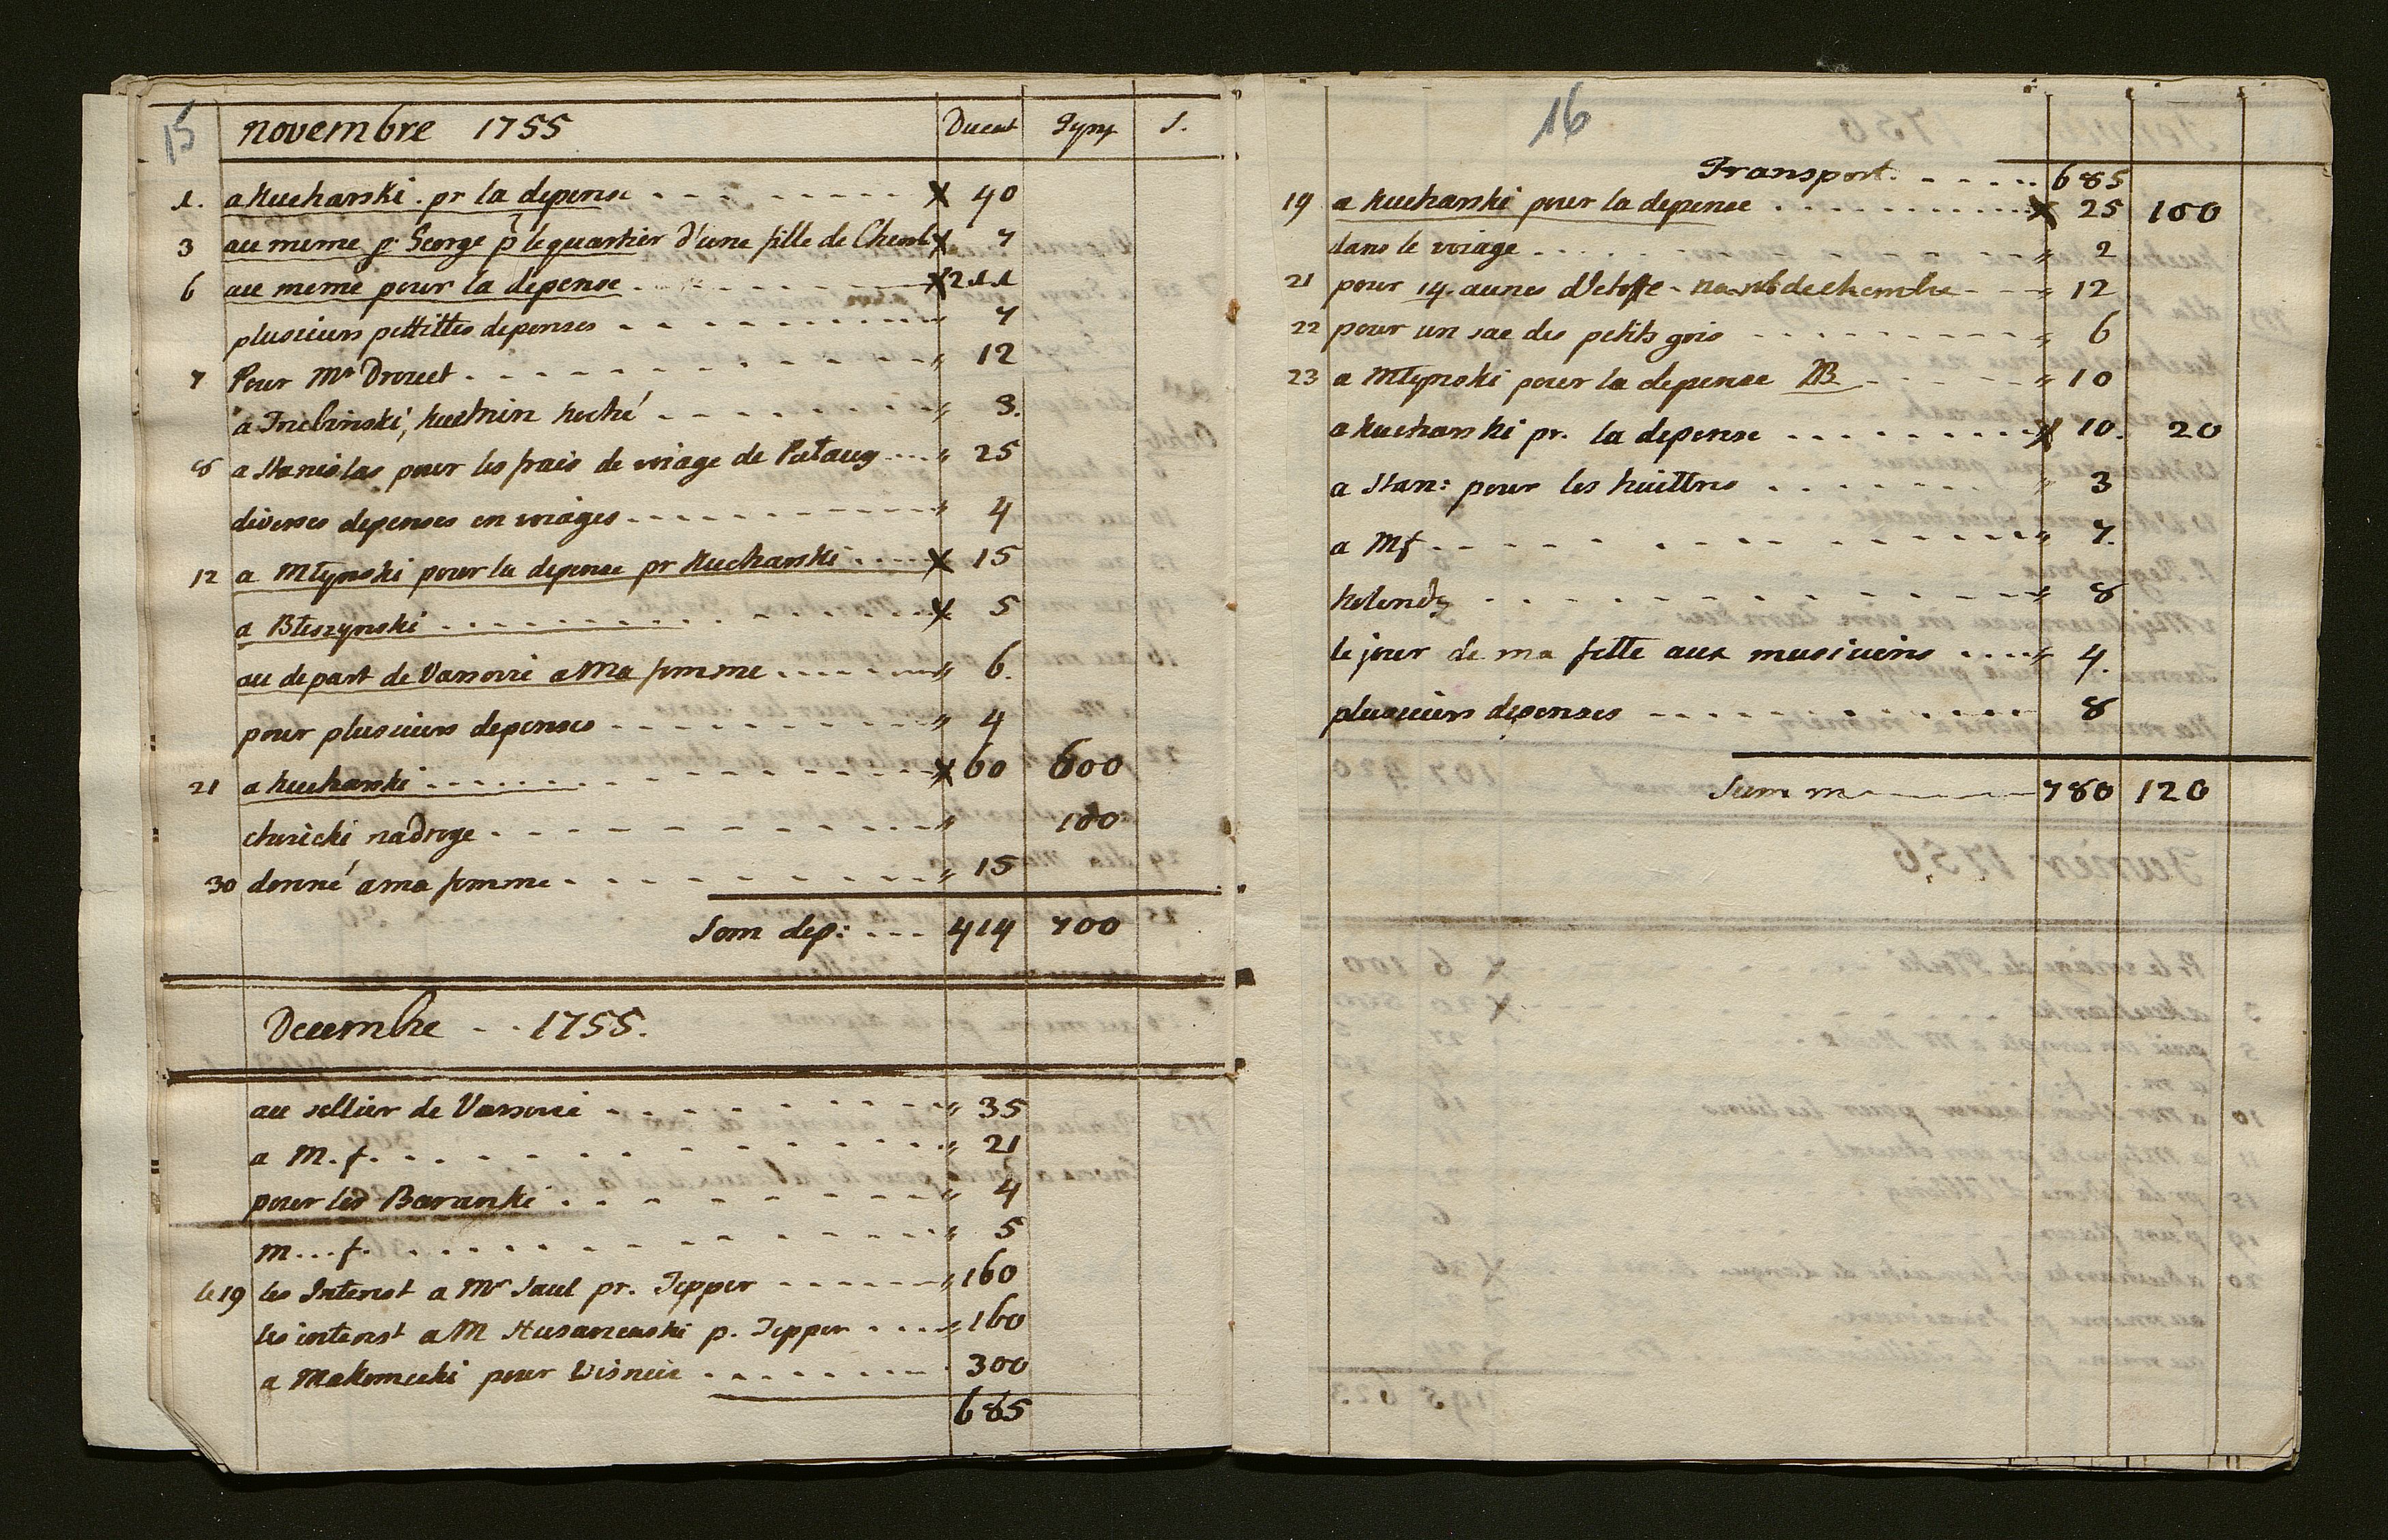 15
novembre 1755 Ducat Tynf S.
1. a Kucharski . pr la depense 40
3 au meme p. George p le quartier d'une fille de 7
6 au meme pour la depense 211
plusieurs pettittes depenses 7
7 Pour Mr Drouet 12
a Trebinski, 3.
8 a Stanislas pour les frais de voiage de 25
diverses depenses en voiages 4
12 a Młynski pour la depense pr Kucharski 15
a Błeszynski 5
au depart de Varsovie a Ma femme 6.
pour plusieurs depenses 4
21 a Kucharski 60 600
na droge 100
30 donné a ma femme 15
Som dep: 414 700
Decembre 1755.
au sellier de Varsovie 35
a M. f. 21
pour les Baranki 4
M...f. 5
le 19 les Interest a Mr Saul pr. Tepper 160
les interest a M p. Tepper 160
a Makomecki pour 300
685
16
Transport. 685
19 a Kucharski pour la depense 25 100
dans le voiage 2
21 pour 14. aunes d'etoffe 12
22 pour un sac des petits gris 6
23 a Młynski pour la depense NB 10
a Kucharski pr. la depense 10. 20
a Stan: pour les huittres 3
a Mf 7.
kolendy 8
le jour de ma fette aux musiciens 4.
plusieurs depenses 8
Summ 780 120